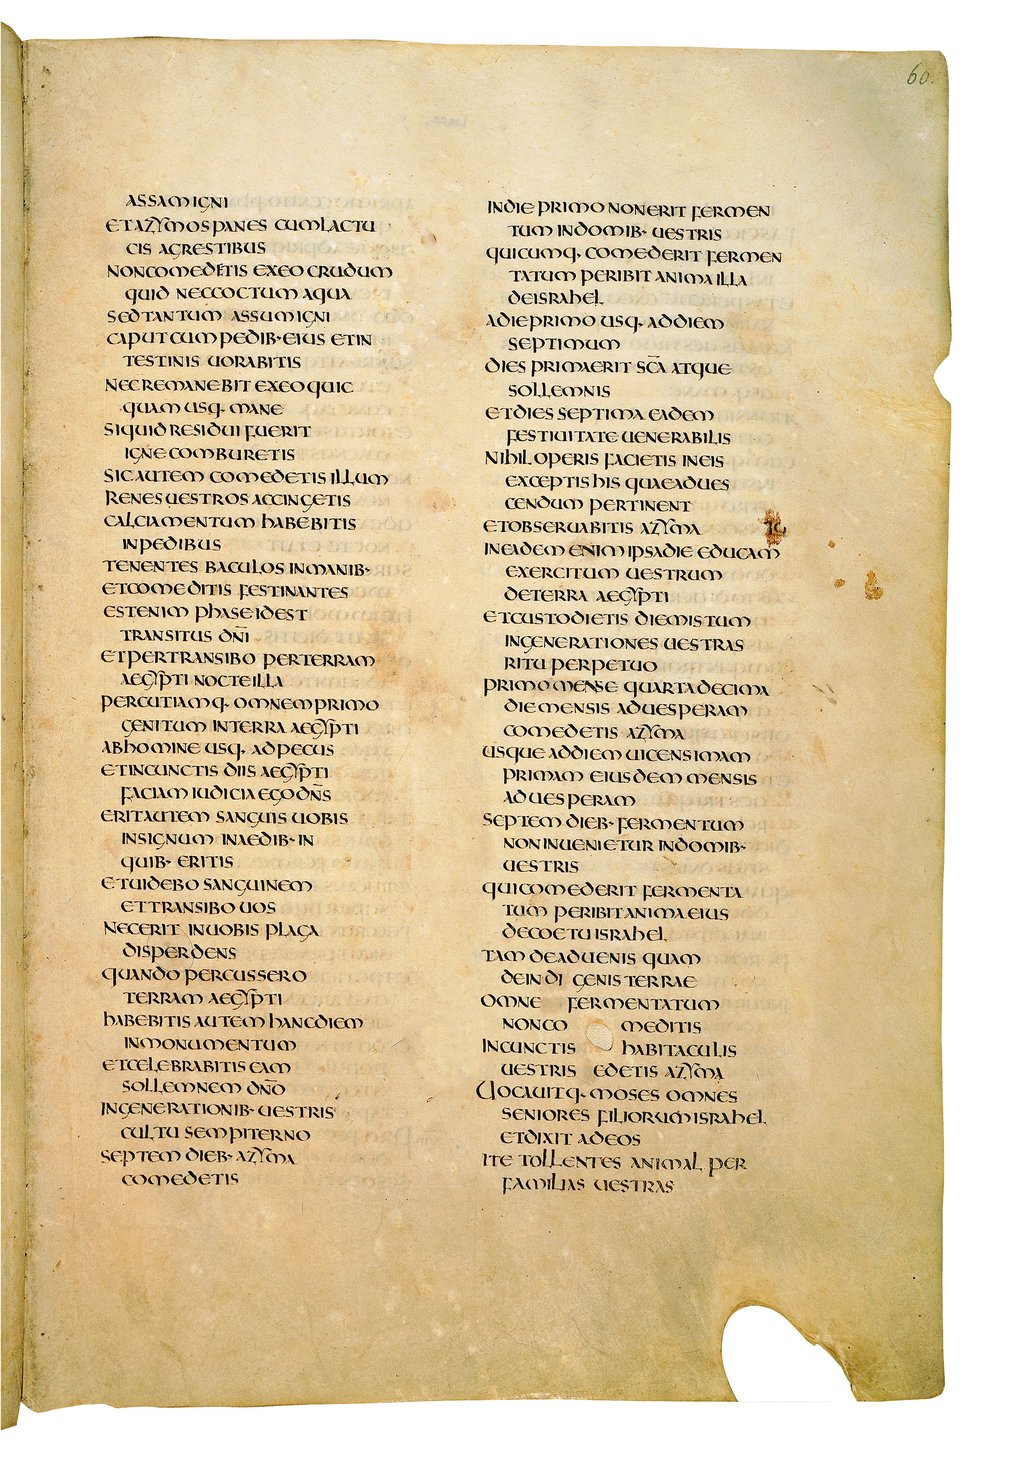 60.
ASSAM IGNI
ET AZYMOS PANES CUM LACTU
CIS AGRESTIBUS
NON COMEDETIS EX EO CRUDUM
QUID NEC COCTUM AQUA
SED TANTUM ASSUM IGNI
CAPUT CUM PEDIB· EIUS ET IN
TESTINIS UORABITIS
NEC REMANEBIT EX EO QUIC
QUAM USQ· MANE
SI QUID RESIDUI FUERIT
IGNE COMBURETIS
SIC AUTEM COMEDETIS ILLUM
RENES UESTROS ACCINGETIS
CALCIAMENTUM HABEBITIS
IN PEDIBUS
TENENTES BACULOS IN MANIB·
ET COMEDITIS FESTINANTES
EST ENIM PHASE ID EST
TRANSITUS DN̄I
ET PERTRANSIBO PER TERRAM
AEGYPTI NOCTE ILLA
PERCUTIAMQ· OMNEM PRIMO
GENITUM IN TERRA AEGYPTI
AB HOMINE USQ· AD PECUS
ET IN CUNCTIS DIIS AEGYPTI
FACIAM IUDICIA EGO DN̄S
ERIT AUTEM SANGUIS UOBIS
IN SIGNUM IN AEDIB· IN
QUIB· ERITIS
ET UIDEBO SANGUINEM
ET TRANSIBO UOS
NEC ERIT IN UOBIS PLAGA
DISPERDENS
QUANDO PERCUSSERO
TERRAM AEGYPTI
HABEBITIS AUTEM HANC DIEM
IN MONUMENTUM
ET CELEBRABITIS EAM
SOLLEMNEM DN̄O
IN GENERATIONIB· UESTRIS
CULTU SEMPITERNO
SEPTEM DIEB· AZYMA
COMEDETIS
IN DIE PRIMO NON ERIT FERMEN
TUM IN DOMIB· UESTRIS
QUICUMQ· COMEDERIT FERMEN
TATUM PERIBIT ANIMA ILLA
DE ISRAHEL
A DIE PRIMO USQ· AD DIEM
SEPTIMUM
DIES PRIMA ERIT SC̄A ATQUE
SOLLEMNIS
ET DIES SEPTIMA EADEM
FESTIUITATE UENERABILIS
NIHIL OPERIS FACIETIS IN EIS
EXCEPTIS HIS QUAE AD UES
CENDUM PERTINENT
ET OBSERUABITIS AZYMA
IN EADEM ENIM IPSA DIE EDUCAM
EXERCITUM UESTRUM
DE TERRA AEGYPTI
ET CUSTODIETIS DIEM ISTUM
IN GENERATIONES UESTRAS
RITU PERPETUO
PRIMO MENSE QUARTA DECIMA
DIE MENSIS AD UESPERAM
COMEDETIS AZYMA
USQUE AD DIEM UICENSIMAM
PRIMAM EIUSDEM MENSIS
AD UESPERAM
SEPTEM DIEB· FERMENTUM
NON INUENIETUR IN DOMIB·
UESTRIS
QUI COMEDERIT FERMENTA
TUM PERIBIT ANIMA EIUS
DE COETU ISRAHEL
TAM DE ADUENIS QUAM
DE INDIGENIS TERRAE
OMNE FERMENTATUM
NON COMEDITIS
IN CUNCTIS HABITACULIS
UESTRIS EDETIS AZYMA
UOCAUITQ· MOSES OMNES
SENIORES FILIORUM ISRAHEL
ET DIXIT AD EOS
ITE TOLLENTES ANIMAL PER
FAMILIAS UESTRAS